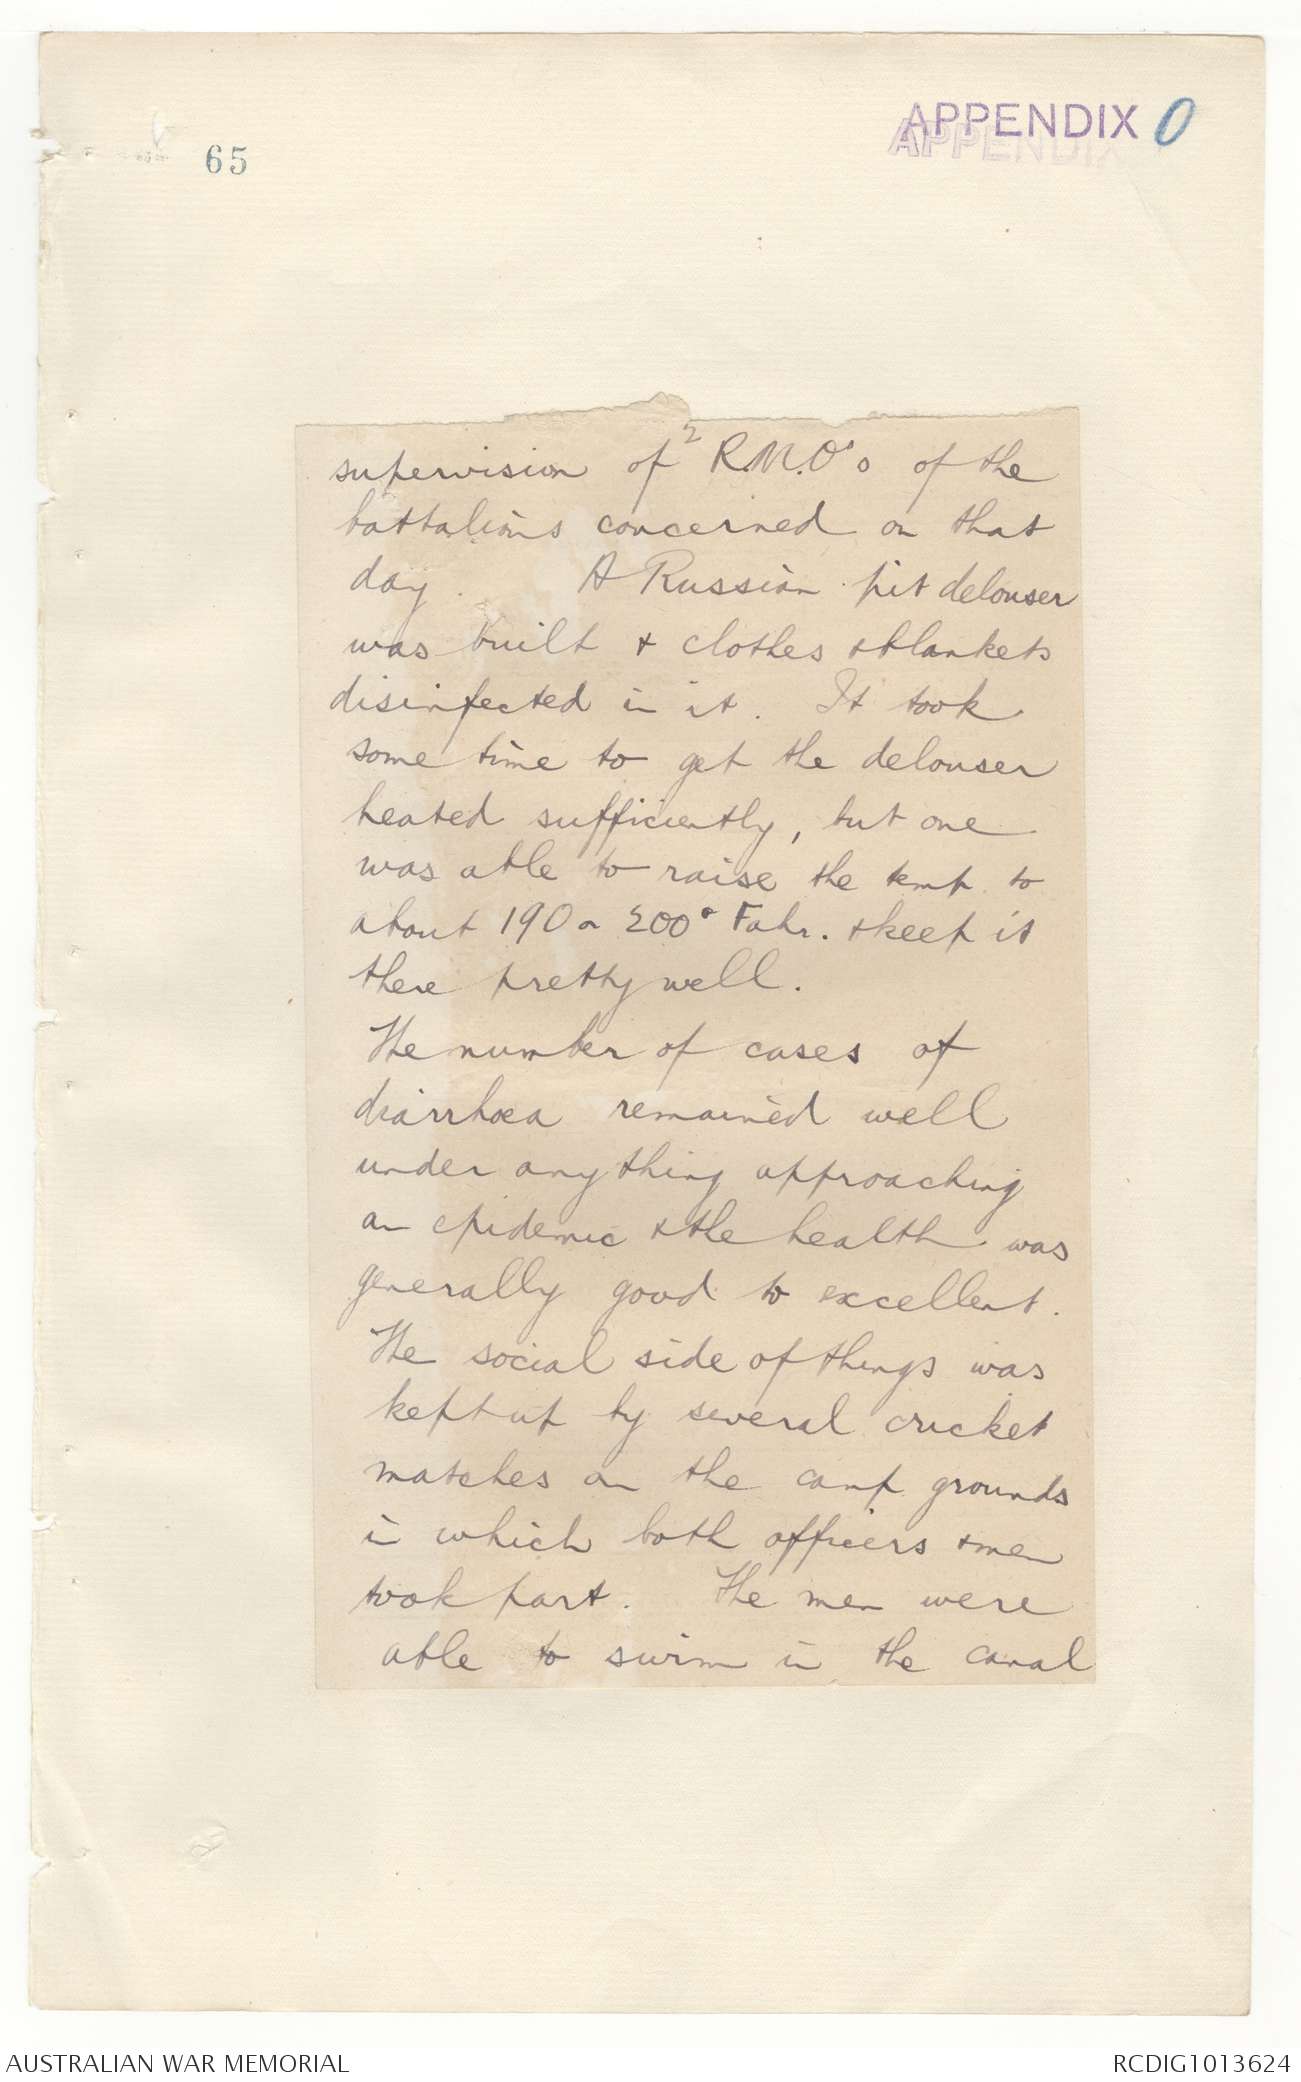 APPENDIX O
65
supervision of 2 R.M.O's of the
battalions concerned on that
day. A Russian pit delouser
was built & clothes & blankets
disinfected in it. It took
some time to get the delouser
heated sufficiently, but one
was able to raise the temp to
about 190 or 200° Fahr. & keep it
there pretty well.
The number of cases of
diarrhoea remained well
under anything approaching
an epidemic & the health was
generally good to excellent.
The social side of things was
kept up by several cricket
matches on the camp grounds
in which both officers & men
took part. The men were
able to swim in the canal
AUSTRALIAN WAR MEMORIAL
RCDIG1013624